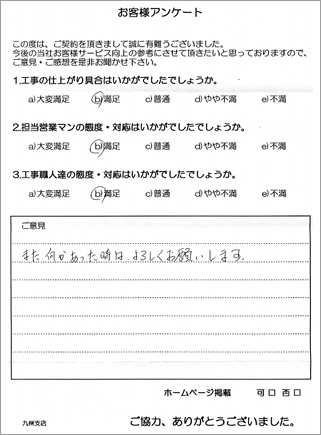 お客様アンケート
この度は、ご契約を頂きまして誠に有難うございました。
今後の当社お客様サービス向上の参考にさせて頂きたいと思っておりますので、
ご意見・ご感想を是非お聞かせ下さい。
1.工事の仕上がり具合はいかがでしたでしょうか。
a)大変満足 b)満足 c)普通 d)やや不満 e)不満
2.担当営業マンの態度・対応はいかがでしたでしょうか。
a)大変満足 b)満足 c)普通 d)やや不満 e)不満
3.工事職人達の態度・対応はいかがでしたでしょうか。
a)大変満足 b)満足 c)普通 d)やや不満 e)不満
ご意見
また何かあった時は、よろしくお願いします。
ホームページ掲載 可□ 否□
九州支店 ご協力、ありがとうございました。